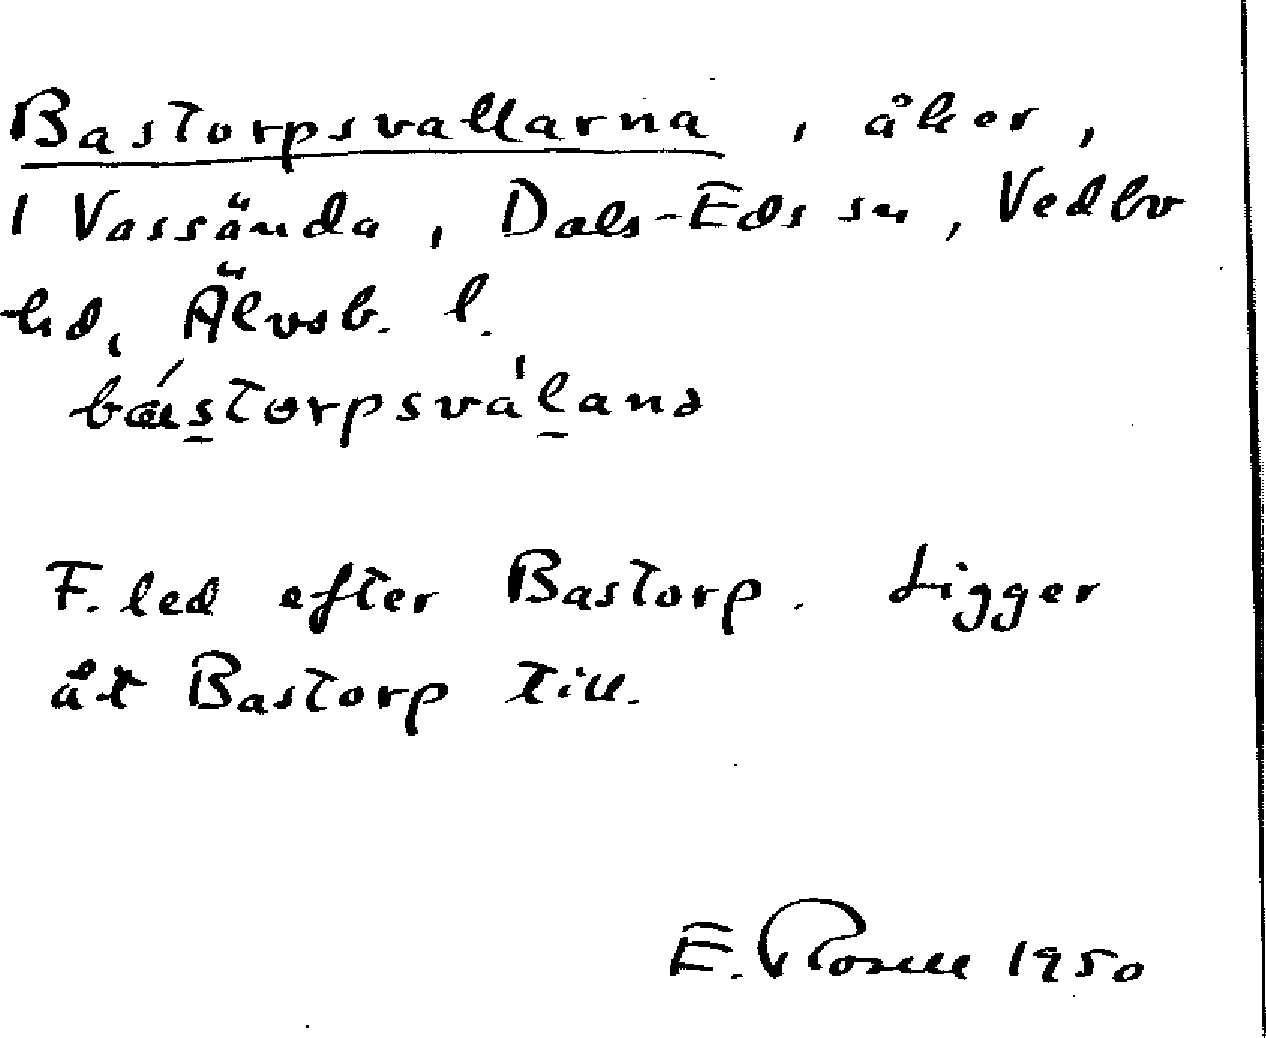 Bastorpsvallarna, åker,
1 Vassända, Dals-Eds sn, Vedbo
hd, Älvsb. l.
bástorpsválana
F.led efter Bastorp. Ligger
åt Bastorp till.
E. Rosell 1950